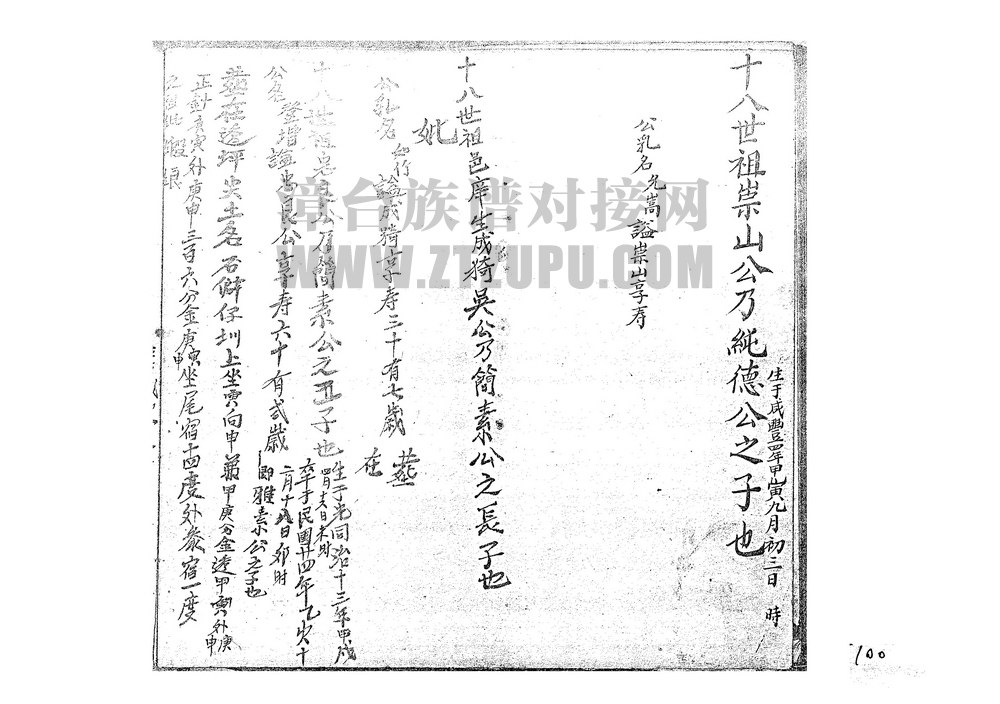 十八世祖崇山公乃純德公之子也
生于咸豐四年甲寅九月初三日 時
公乳名允嵩諡崇山享寿
十八世祖邑庠生成猗吳公乃簡素公之長子也
妣
公乳名 如竹 諡成猗享寿三十有七歲
葬在
十八世祖忠良公乃簡素公之五子也
生于光同治十三年甲戌
未時
卒于民國廿四年乙亥十
二月十八日卯時
公名登增諡忠良公享寿六十有貳歲
即雅素公之子也
葬在逸坪尖土名石僻仔圳上坐寅向申兼甲庚分金透甲寅外庚申
正針寅外庚申三百六分金庚寅庚申坐尾宿十四度外參宿一度
漳台族谱对接网
WWW.ZTZUPU.COM
100